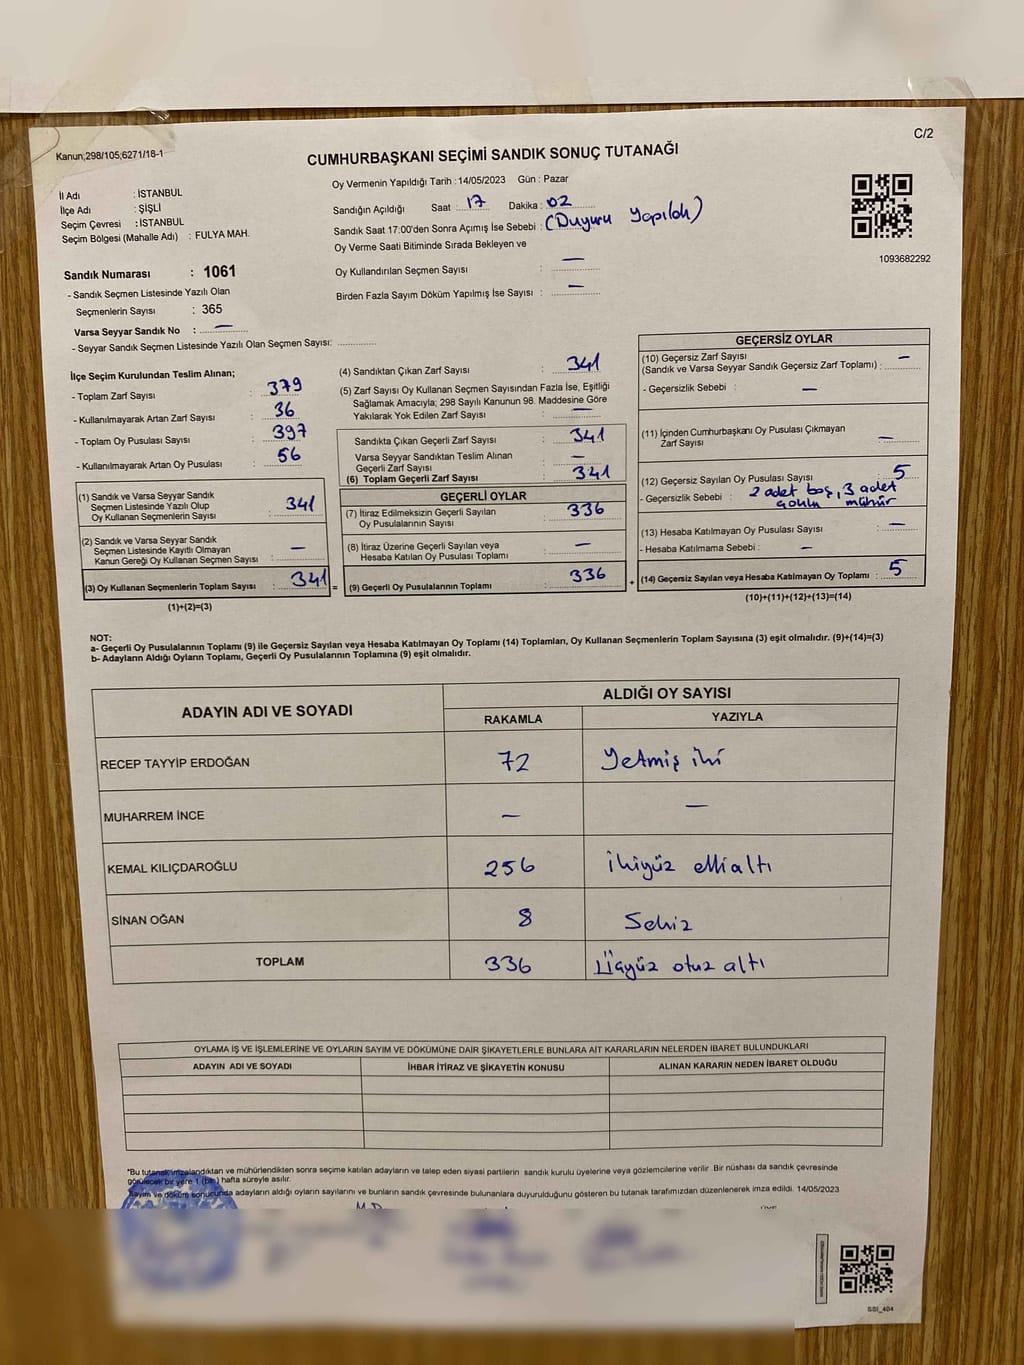 C/2
Kanun;298/105;6271/18-1
CUMHURBAŞKANI SEÇİMİ SANDIK SONUÇ TUTANAĞI
İl Adı : İSTANBUL
İlçe Adı : ŞİŞLİ
Seçim Çevresi : İSTANBUL
Seçim Bölgesi (Mahalle Adı) : FULYA MAH.
Sandık Numarası : 1061
- Sandık Seçmen Listesinde Yazılı Olan
Seçmenlerin Sayısı : 365
Varsa Seyyar Sandık No : —
- Seyyar Sandık Seçmen Listesinde Yazılı Olan Seçmen Sayısı:
Oy Vermenin Yapıldığı Tarih : 14/05/2023 Gün : Pazar
Sandığın Açıldığı Saat : 17 Dakika : 02
Sandık Saat 17:00'den Sonra Açımış İse Sebebi : (Duyuru Yapıldı)
Oy Verme Saati Bitiminde Sırada Bekleyen ve
Oy Kullandırılan Seçmen Sayısı : —
Birden Fazla Sayım Döküm Yapılmış İse Sayısı : —
1093682292
İlçe Seçim Kurulundan Teslim Alınan;
- Toplam Zarf Sayısı : 379
- Kullanılmayarak Artan Zarf Sayısı : 36
- Toplam Oy Pusulası Sayısı : 397
- Kullanılmayarak Artan Oy Pusulası : 56
(1) Sandık ve Varsa Seyyar Sandık
Seçmen Listesinde Yazılı Olup
Oy Kullanan Seçmenlerin Sayısı : 341
(2) Sandık ve Varsa Seyyar Sandık
Seçmen Listesinde Kayıtlı Olmayan
Kanun Gereği Oy Kullanan Seçmen Sayısı : —
(3) Oy Kullanan Seçmenlerin Toplam Sayısı : 341 =
(1)+(2)=(3)
(4) Sandıktan Çıkan Zarf Sayısı : 341
(5) Zarf Sayısı Oy Kullanan Seçmen Sayısından Fazla İse, Eşitliği
Sağlamak Amacıyla; 298 Sayılı Kanunun 98. Maddesine Göre
Yakılarak Yok Edilen Zarf Sayısı : —
Sandıkta Çıkan Geçerli Zarf Sayısı : 341
Varsa Seyyar Sandıktan Teslim Alınan
Geçerli Zarf Sayısı : —
(6) Toplam Geçerli Zarf Sayısı : 341
GEÇERLİ OYLAR
(7) İtiraz Edilmeksizin Geçerli Sayılan
Oy Pusulalarının Sayısı : 336
(8) İtiraz Üzerine Geçerli Sayılan veya
Hesaba Katılan Oy Pusulası Toplamı : —
(9) Geçerli Oy Pusulalarının Toplamı : 336 +
GEÇERSİZ OYLAR
(10) Geçersiz Zarf Sayısı
(Sandık ve Varsa Seyyar Sandık Geçersiz Zarf Toplamı) : —
- Geçersizlik Sebebi : —
(11) İçinden Cumhurbaşkanı Oy Pusulası Çıkmayan
Zarf Sayısı : —
(12) Geçersiz Sayılan Oy Pusulası Sayısı : 5
- Geçersizlik Sebebi : 2 adet boş, 3 adet
mühür
(13) Hesaba Katılmayan Oy Pusulası Sayısı : —
- Hesaba Katılmama Sebebi : —
(14) Geçersiz Sayılan veya Hesaba Katılmayan Oy Toplamı : 5
(10)+(11)+(12)+(13)=(14)
NOT:
a- Geçerli Oy Pusulalarının Toplamı (9) ile Geçersiz Sayılan veya Hesaba Katılmayan Oy Toplamı (14) Toplamları, Oy Kullanan Seçmenlerin Toplam Sayısına (3) eşit olmalıdır. (9)+(14)=(3)
b- Adayların Aldığı Oyların Toplamı, Geçerli Oy Pusulalarının Toplamına (9) eşit olmalıdır.
ADAYIN ADI VE SOYADI ALDIĞI OY SAYISI
RAKAMLA YAZIYLA
RECEP TAYYİP ERDOĞAN 72 Yetmiş iki
MUHARREM İNCE — —
KEMAL KILIÇDAROĞLU 256 ikiyüz elli altı
SİNAN OĞAN 8 Sekiz
TOPLAM 336 Üçyüz otuz altı
OYLAMA İŞ VE İŞLEMLERİNE VE OYLARIN SAYIM VE DÖKÜMÜNE DAİR ŞİKAYETLERLE BUNLARA AİT KARARLARIN NELERDEN İBARET BULUNDUKLARI
ADAYIN ADI VE SOYADI İHBAR İTİRAZ VE ŞİKAYETİN KONUSU ALINAN KARARIN NEDEN İBARET OLDUĞU
*Bu tutanak imzalandıktan ve mühürlendikten sonra seçime katılan adayların ve talep eden siyasi partilerin sandık kurulu üyelerine veya gözlemcilerine verilir. Bir nüshası da sandık çevresinde
görülecek bir yere 1 (bir) hafta süreyle asılır.
*Sayım ve döküm sonucunda adayların aldığı oyların sayılarını ve bunların sandık çevresinde bulunanlara duyurulduğunu gösteren bu tutanak tarafımızdan düzenlenerek imza edildi. 14/05/2023
SSI_404